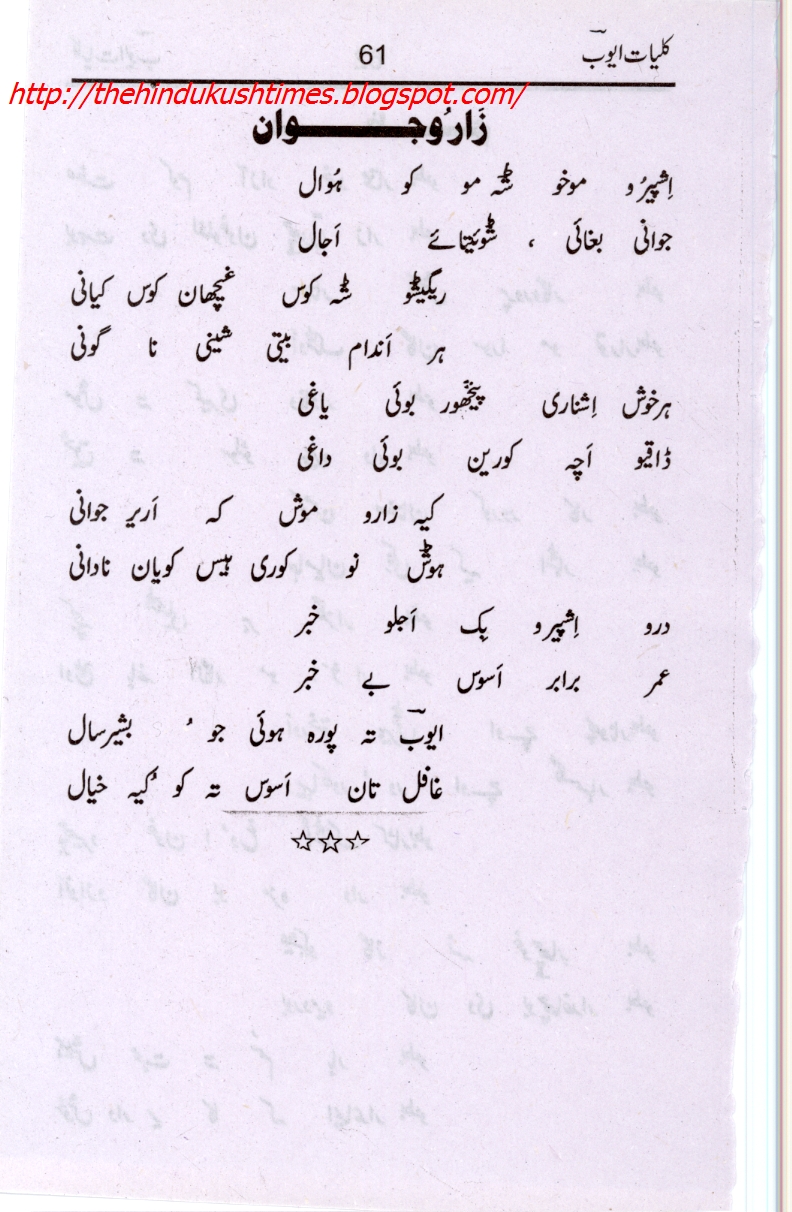 کلیات ایوبؔ
61
http://thehindukushtimes.blogspot.com/
زَارُوجوان
اِشپیرُو موخو شہ مو کو ہُوال
جوانی بغائی ، شوئیتائے اَجال
ریگیشو شہ کوس غیچھان کوس کیانی
ہر اَندام بیتی شینی نا گونی
ہرخوش اِشناری پیخچھور بوئی یاغی
ڈاقیو اَچہ کورین بوئی داغی
کیہ زارو موش کہ اَریر جوانی
ہوش نو کوری ہیس کویان نادانی
درو اِشپیرو بِک اَجلو خبر
عمر برابر اَسوس بے خبر
ایوبؔ تہ پورہ ہوئی جوُ بشیرسال
غافل تان اَسوس تہ کوُ کیہ خیال